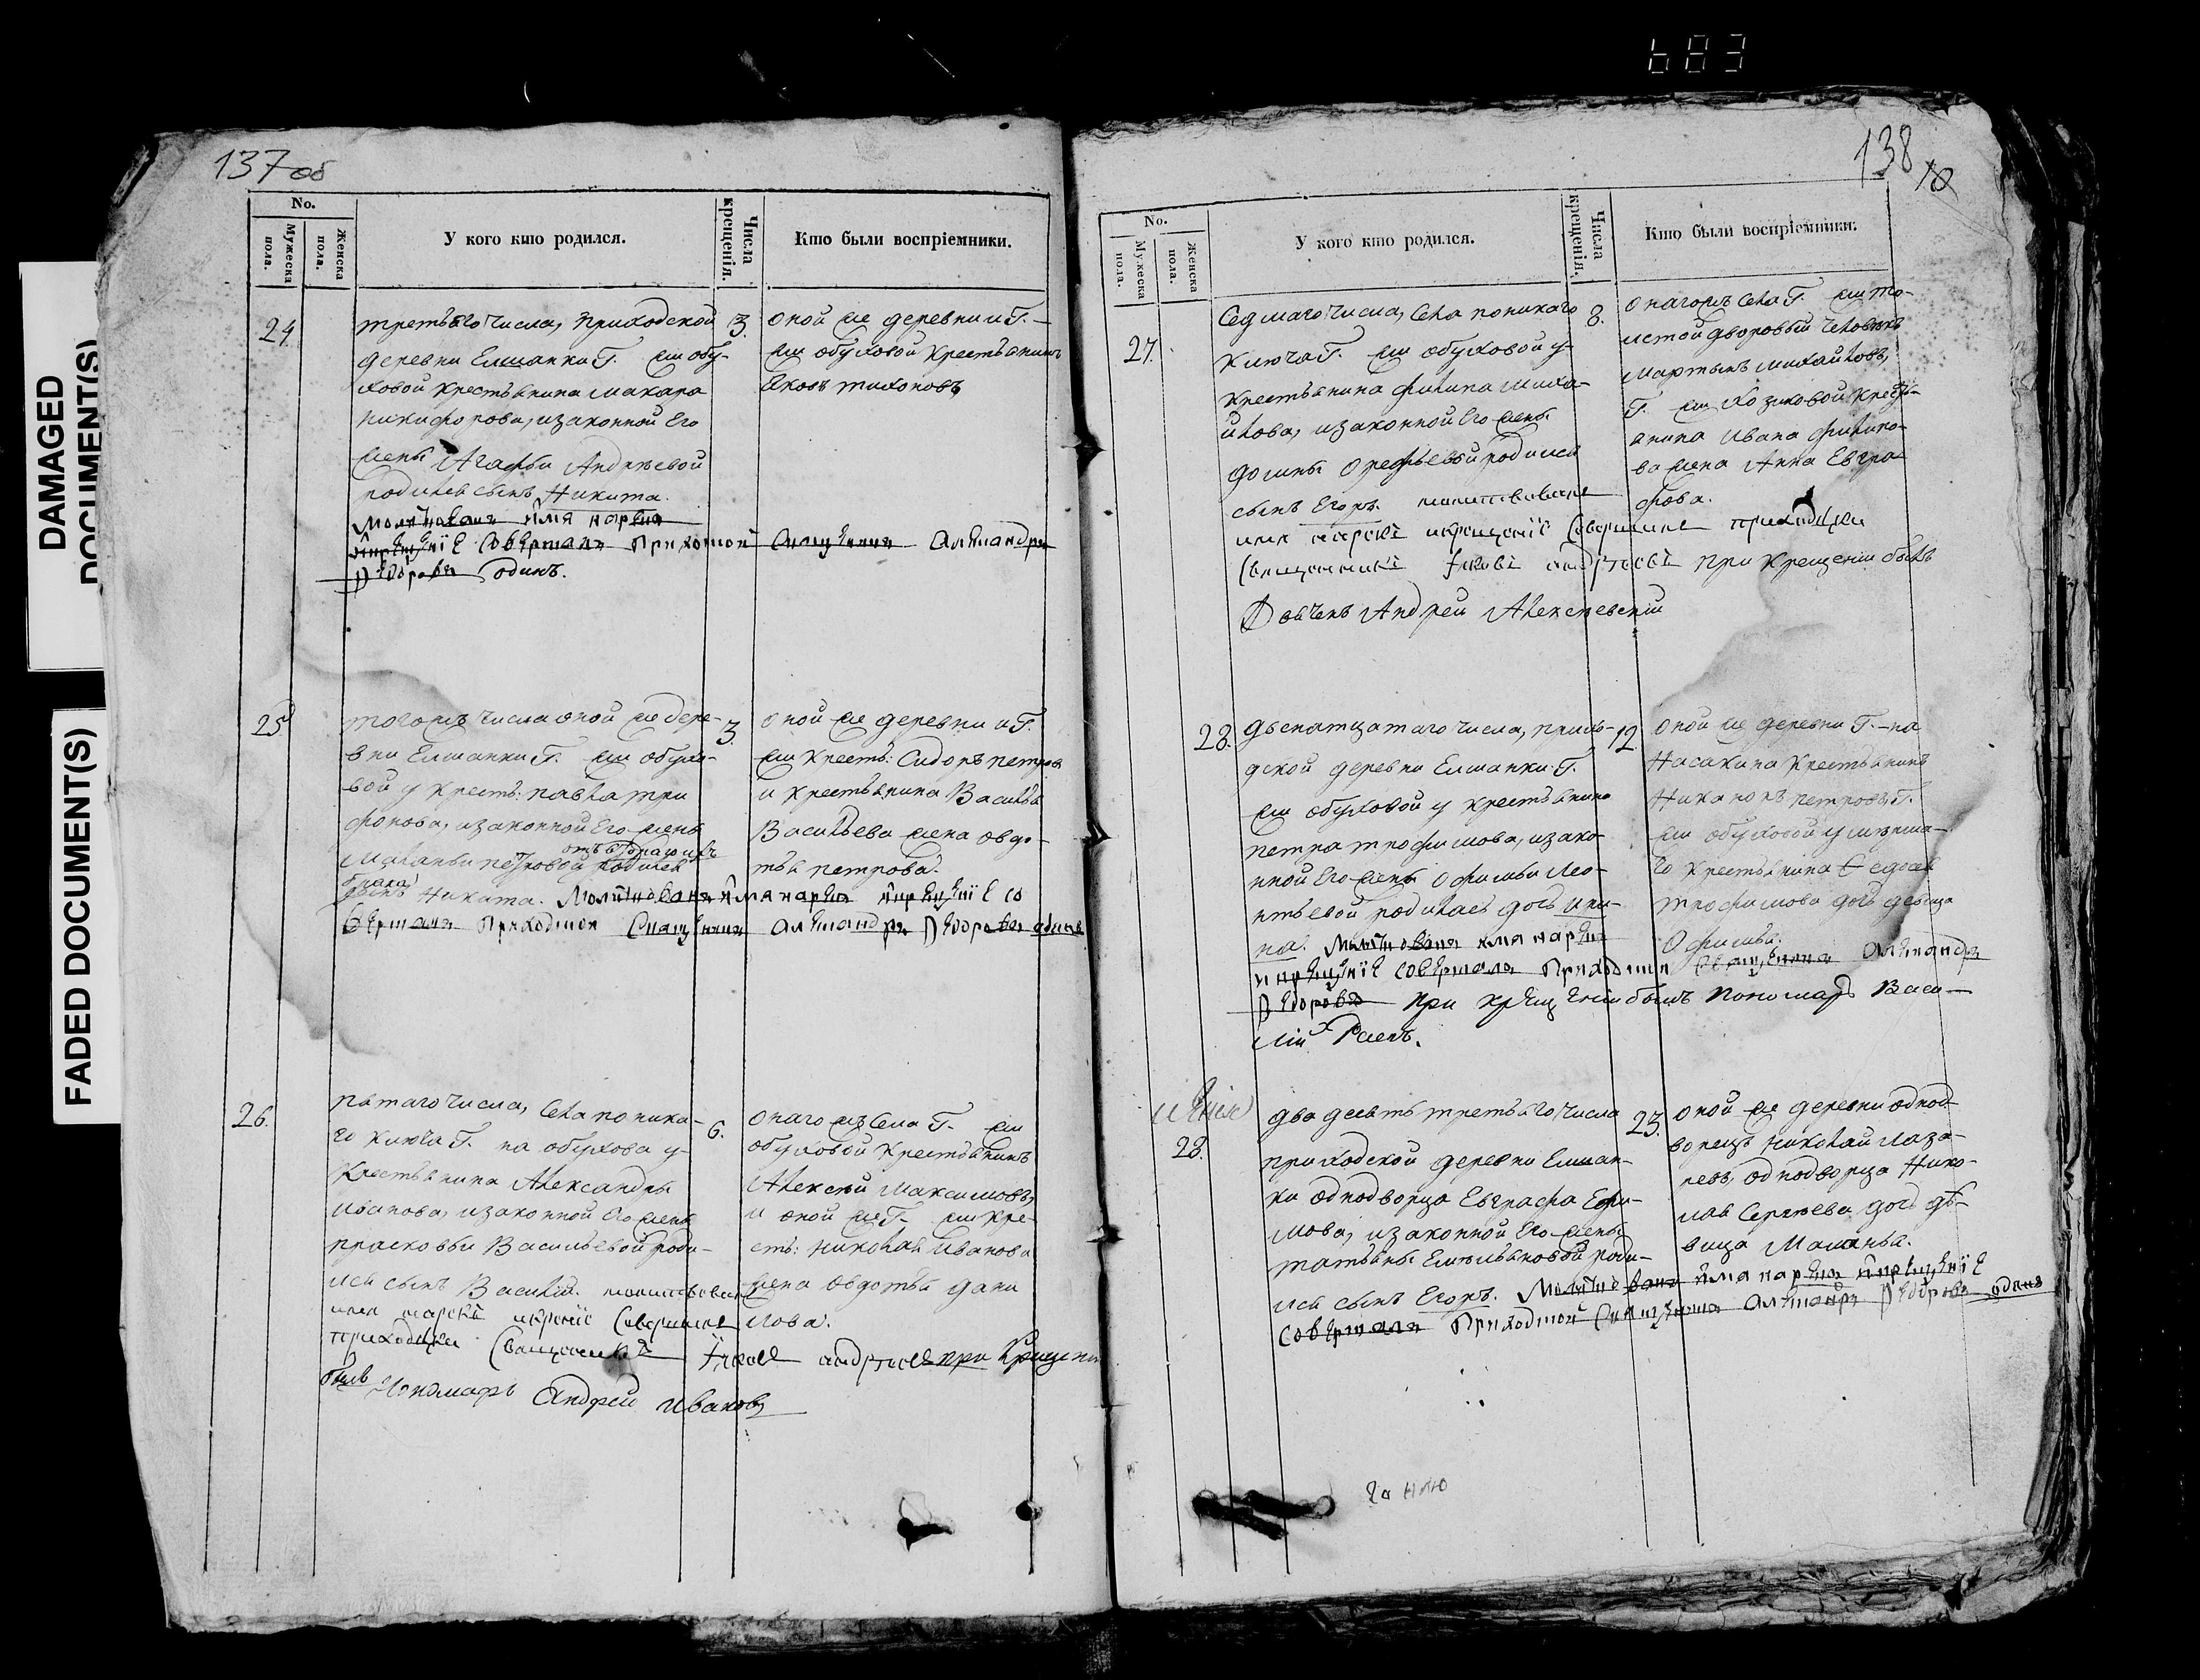 683
DAMAGED
DOCUMENT(S)
FADED DOCUMENT(S)
137 об
No.
Мужеска пола.
Женска пола.
У кого кто родился.
Числа крещенія.
Кто были воспріемники.
24
третьяго числа, приходской
деревни Елшанки Г. жи обу-
ховой крестьянина макара
никифорова, изаконной Его
жены Агафьи Андреевой
родился сынъ Никита.
Молитвовалъ имя нарекъ
и крещеніе совершалъ Приходской Священникъ Александръ
Федоровъ одинъ.
3.
оной же деревни и Г.
жи обуховой крестьянинъ
Яковъ тихоновъ
25
тогожъ числа оной же дере-
вни Елшанки Г. жи обухо-
вой у крест: павла три
фонова, изаконной Его жены
Маланьи петровой родился
сынъ Никита. Молитвовалъ имя нарекъ и крещеніе со
вершалъ Приходской Священникъ Александръ Федоровъ одинъ
3.
оной же деревни и Г.
жи крест: Сидоръ петровъ
и крестьянина Василья
Васильева жена овдо-
тья петрова.
26.
пятаго числа, села поника-
го ключа Г. на обухова у
Крестьянина Александры
иванова, изаконной Его жены
прасковьи Васильевой роди-
лся сынъ Василій. молитвовалъ
имя нарекъ и крещеніе совершалъ
приходскій священникъ Іаковъ андреевъ при крещеніи
былъ Пономарь Андрей Ивановъ
6.
онаго жъ села Г. жи
обуховой крестьянинъ
Алексѣй Максимовъ,
и оной же Г. жи кре-
сть: николая иванова
жена овдотья дани
лова.
138
10
No.
Мужеска пола.
Женска пола.
У кого кто родился.
Числа крещенія.
Кто были воспріемники.
27.
Седмаго числа, села поникаго
Ключа Г. жи обуховой у
крестьянина филипа миха-
йлова, изаконной Его жены
домны Орефьевой родился
сынъ Егоръ. молитвовалъ
имя нарекъ и крещеніе совершалъ приходскій
священникъ Іаковъ андреевъ при крещеніи былъ
Дьячекъ Андрей Алексѣевскій
8.
онагожъ села Г. жи то-
лстой дворовый человекъ
мартынъ михайловъ,
Г. жи козиковой крестья-
янина ивана филипо-
ва жена Анна Евгра
фова.
28.
двенатцатаго числа, прихо-
дской деревни Елшанки Г.
жи обуховой у крестьянина
петра трофимова, изако-
нной Его жены Офимьи лео-
нтьевой родилась дочь ири-
на. Молитвовалъ имя нарекъ
и крещеніе совершалъ Приходской Священникъ Александръ
Федоровъ при крещеніи былъ Пономарь Васи-
лій
12.
оной же деревни Г. на
Насакина крестьянинъ
Никаноръ петровъ, Г.
жи обуховой
крестьянина Федосея
трофимова дочь девица
Офимья.
28.
двадесять третьяго числа
приходской деревни Елшан-
ки однодворца Евграфа Ефи-
мова, изаконной Его жены
татьяны Емельяновой роди-
лся сынъ Егоръ. Молитвовалъ имя нарекъ и крещеніе
совершалъ Приходской Священникъ Александръ Федоровъ одинъ
23.
оной же деревни однод-
ворецъ николай лаза-
ревъ, однодворца Нико-
лая Сергеева дочь дѣ-
вица Маланья.